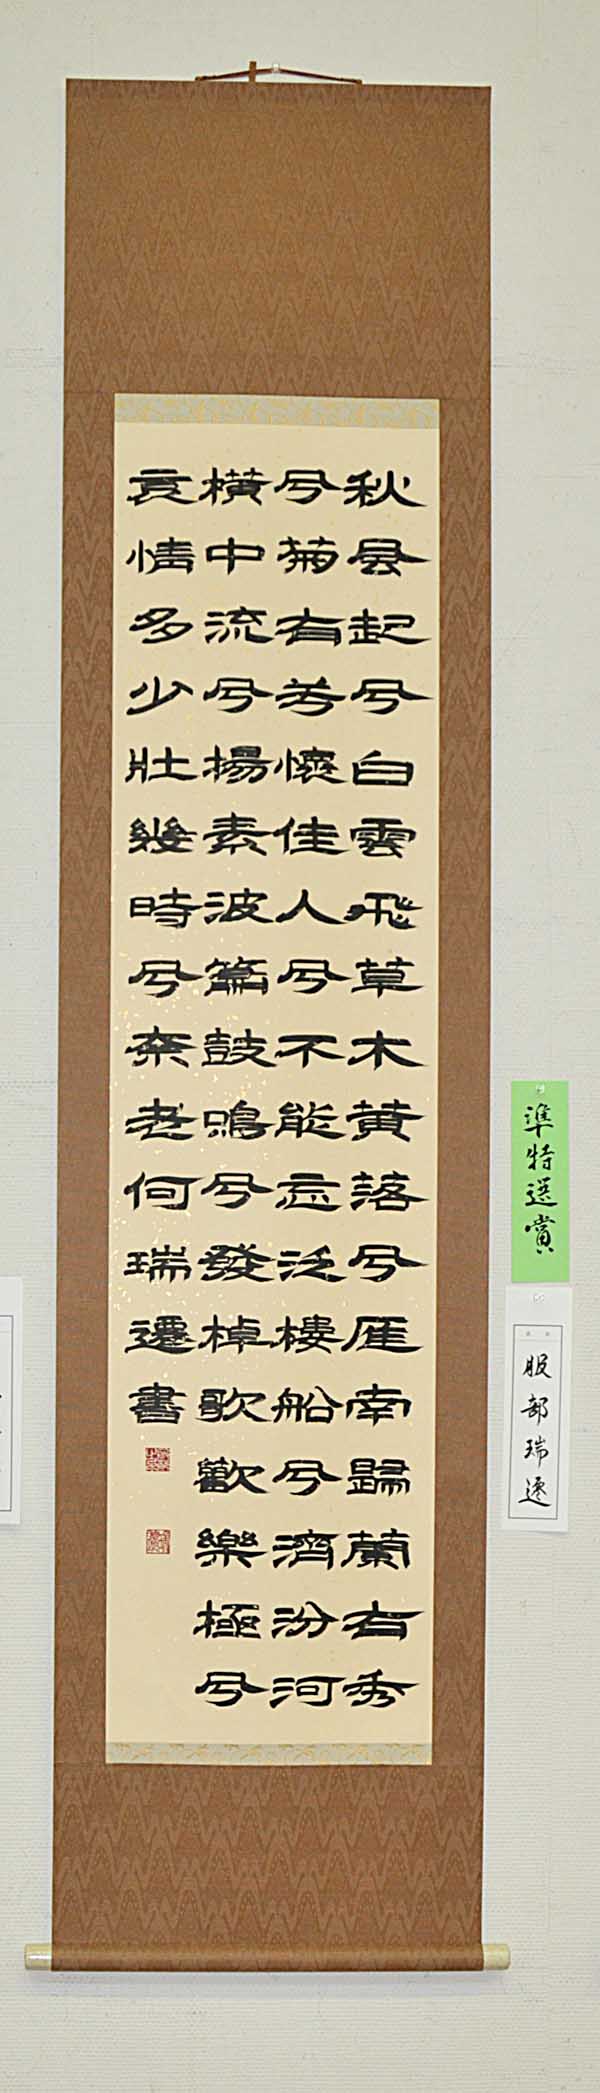 秋風起兮白雲飛草木黄落兮雁南歸蘭有秀
兮菊有芳懷佳人兮不能忘泛樓船兮濟汾河
横中流兮揚素波簫鼓鳴兮發棹歌歡樂極兮
哀情多少壯幾時兮奈老何瑞遷書
準特選賞
服部瑞遷